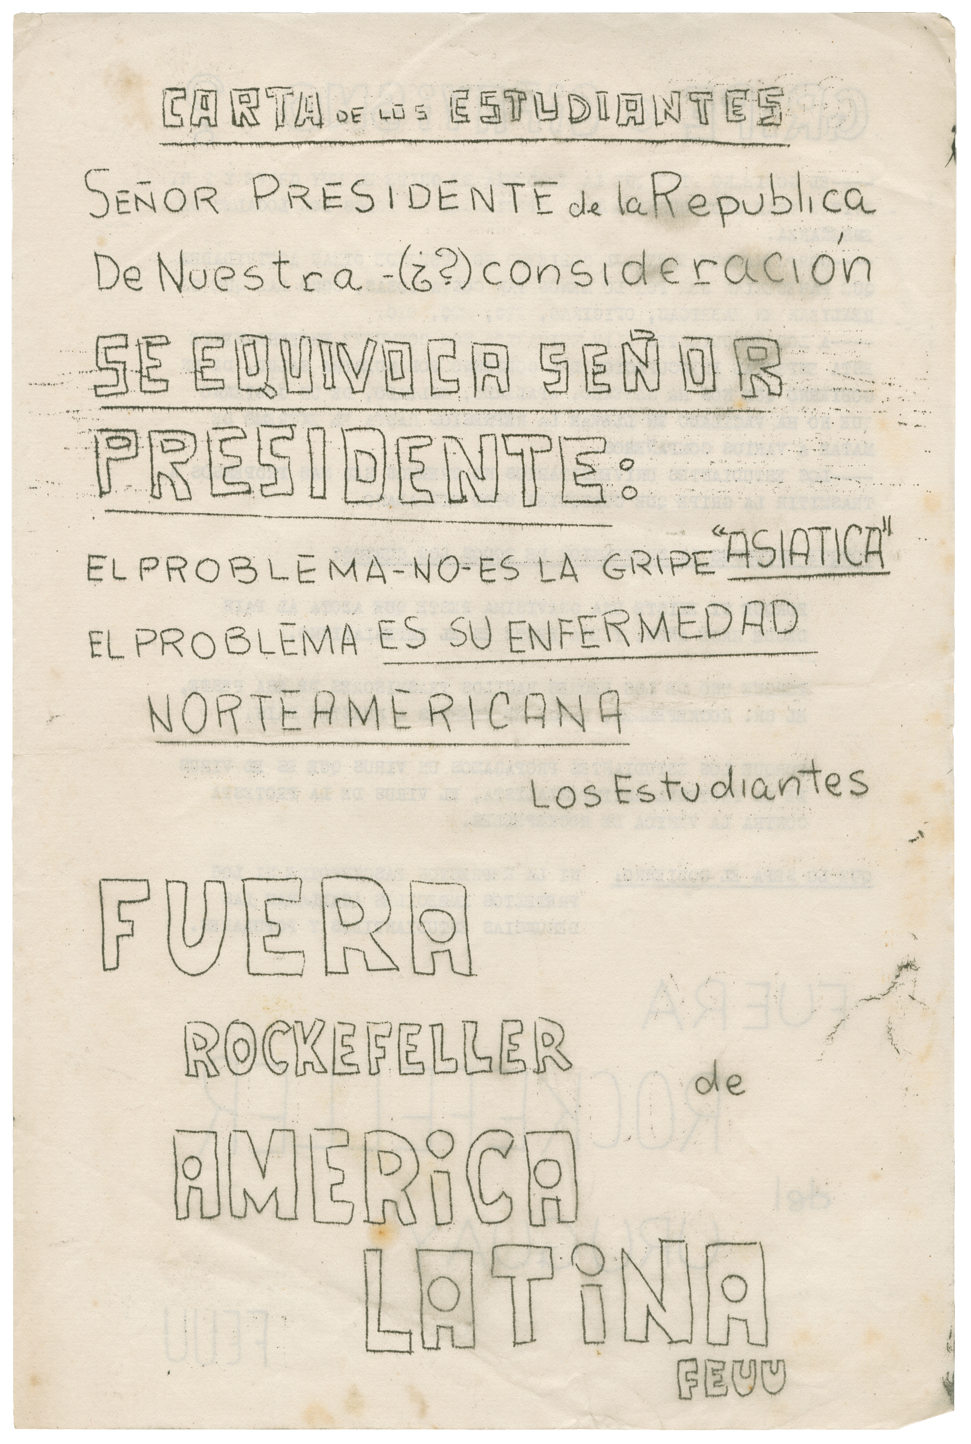 CARTA DE LOS ESTUDIANTES
SEÑOR PRESIDENTE de la Republica
De Nuestra -(¿?) consideración
SE EQUIVOCA SEÑOR
PRESIDENTE:
EL PROBLEMA-NO-ES LA GRIPE "ASIATICA"
EL PROBLEMA ES SU ENFERMEDAD
NORTEAMERICANA
Los Estudiantes
FUERA
ROCKEFELLER
de
AMERiCA
LATiNA
FEUU